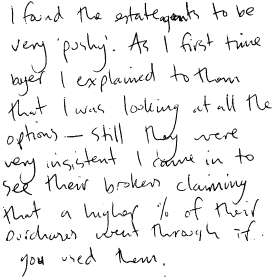 I found the estate agents to be
very 'pushy'. As I first time
byer I explained to them
that I was looking at all the
options – still they were
very insistent I came in to
see their brokers claiming
that a higher % of their
purchases went through if
you used them.